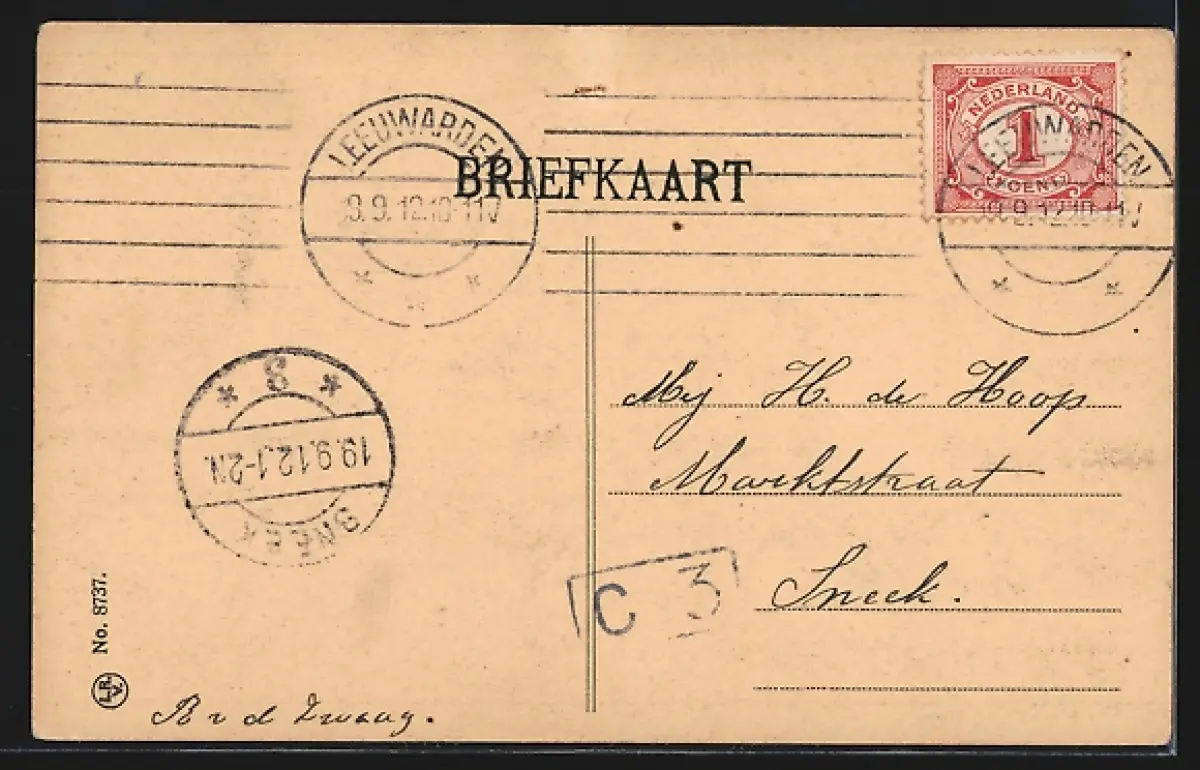 LEEUWARDEN
19.9.12.10-11V
BRIEFKAART
NEDERLAND
1
CENT
LEEUWARDEN
19.9.12.10-11V
8
19.9.12.1-2N.
SNEEK
Mej H. de Hoop
Marktstraat
Sneek.
C 3
No. 8737.
B v d Zwaag.